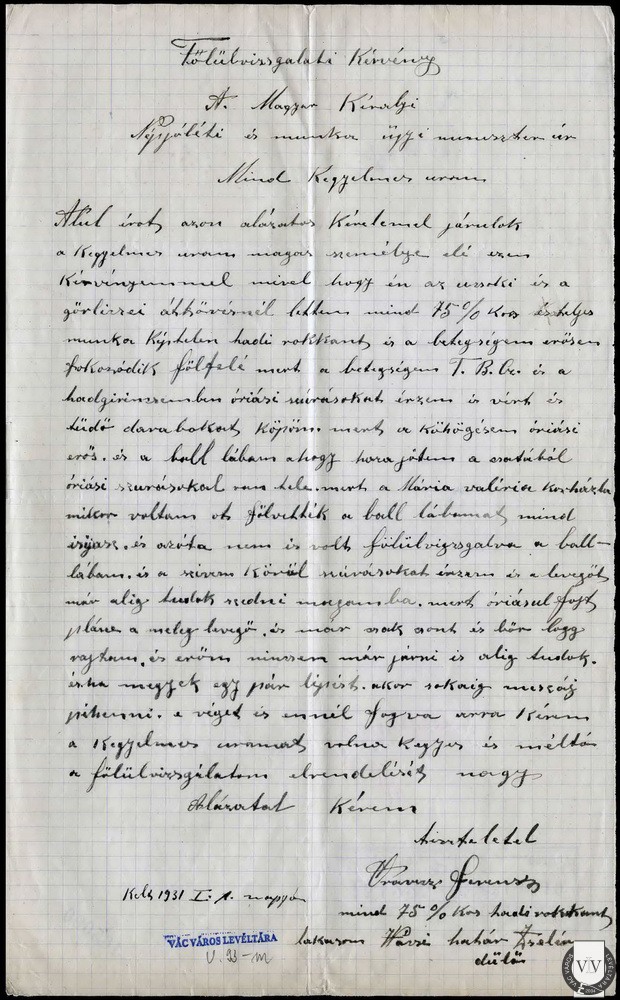 Fölülvizsgalati Kérvény
A. Magyar Királyi
Népjóléti és munka ügyi miniszter úr
Mind Kegyelmes uram
Alul irot azon alázatos Kérelemel járulok
a Kegyelmes uram magas személye elé ezen
Kérvényemmel mivel hogy én az uzsoki és a
görliczei áttörésnél lettem mind 75% kos és teljes
munka Képtelen hadi rokkant és a betegségem erősen
fokozódik fölfelé mert a betegségem T.B.C. és a
óriási szúrásokat érzem is vért és
tüdő darabokat köpöm. mert a köhögésem óriási
erős. és a ball lábam ahogy haza jötem a csatából
óriási szurásokal van tele. mert a Mária valéria korházba
mikor voltam ot fölvették a ball lábamat mind
és azóta nem is volt fölülvizsgalva a ball-
lábam. is a szivem Körül szúrásokat érzem és a levegőt
már alig tudok szedni magamba. mert óriásul fojt
pláne a meleg levegő. és már csak csont és bőr lógg
rajtam. és erőm ninssen már járni is alig tudok.
és ha megyek egy pár lépést. akor sokaig
pihenni. e véget is ennél fogva arra Kérem
a Kegyelmes uramat volna Kegyes és méltós
a fölülvizsgálatom elrendelését nagy
Alázatal Kérem
tisztelettel
Ferencz
Kelt 1931 I. 1. napján
mind 75% kos hadi rokkant
lakasom Váczi határ
dülő
VÁC VÁROS LEVÉLTÁRA
V. 33-m
VÁC VÁROS LEVÉLTÁRA
VL